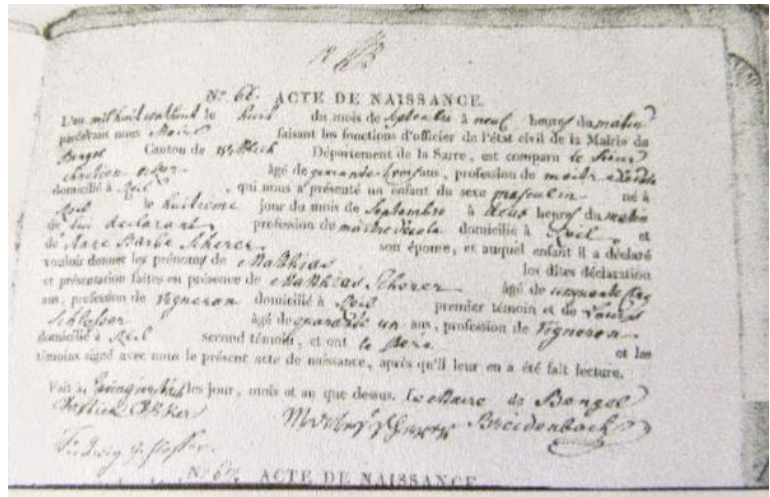 No. 66. ACTE DE NAISSANCE.
L'an mil huit cent huit le du mois de Septembre à neuf heures du matin
pardevant nous Maire faisant les fonctions d'officier de l'état civil de la Mairie de
Bengel Canton de Wittlich Département de la Sarre, est comparu le Sieur
âgé de quarante ans, profession de maitre d'école
domicilié à Reil, qui nous a présenté un enfant du sexe masculin né à
Reil le huitieme jour du mois de Septembre à deux heures du matin
de lui declarant profession de maitre d'ecole domicilié à Reil, et
de Anne Barbe Scherer son épouse, et auquel enfant il a déclaré
vouloir donner les prénoms de Matthias les dites déclaration
et présentation faites en présence de Matthias Scherer âgé de cinquante cinq
ans, profession de vigneron domicilié à Reil premier témoin et de Louis
Schlosser âgé de quarante un ans, profession de vigneron
domicilié à Reil second témoin, et ont le Pere et les
témoins signé avec nous le présent acte de naissance, après qu'il leur en a été fait lecture.
Fait à les jour, mois et an que dessus. Le Maire de Bengel
Breidenbach
Ludwig Schlosser
No. 67. ACTE DE NAISSANCE